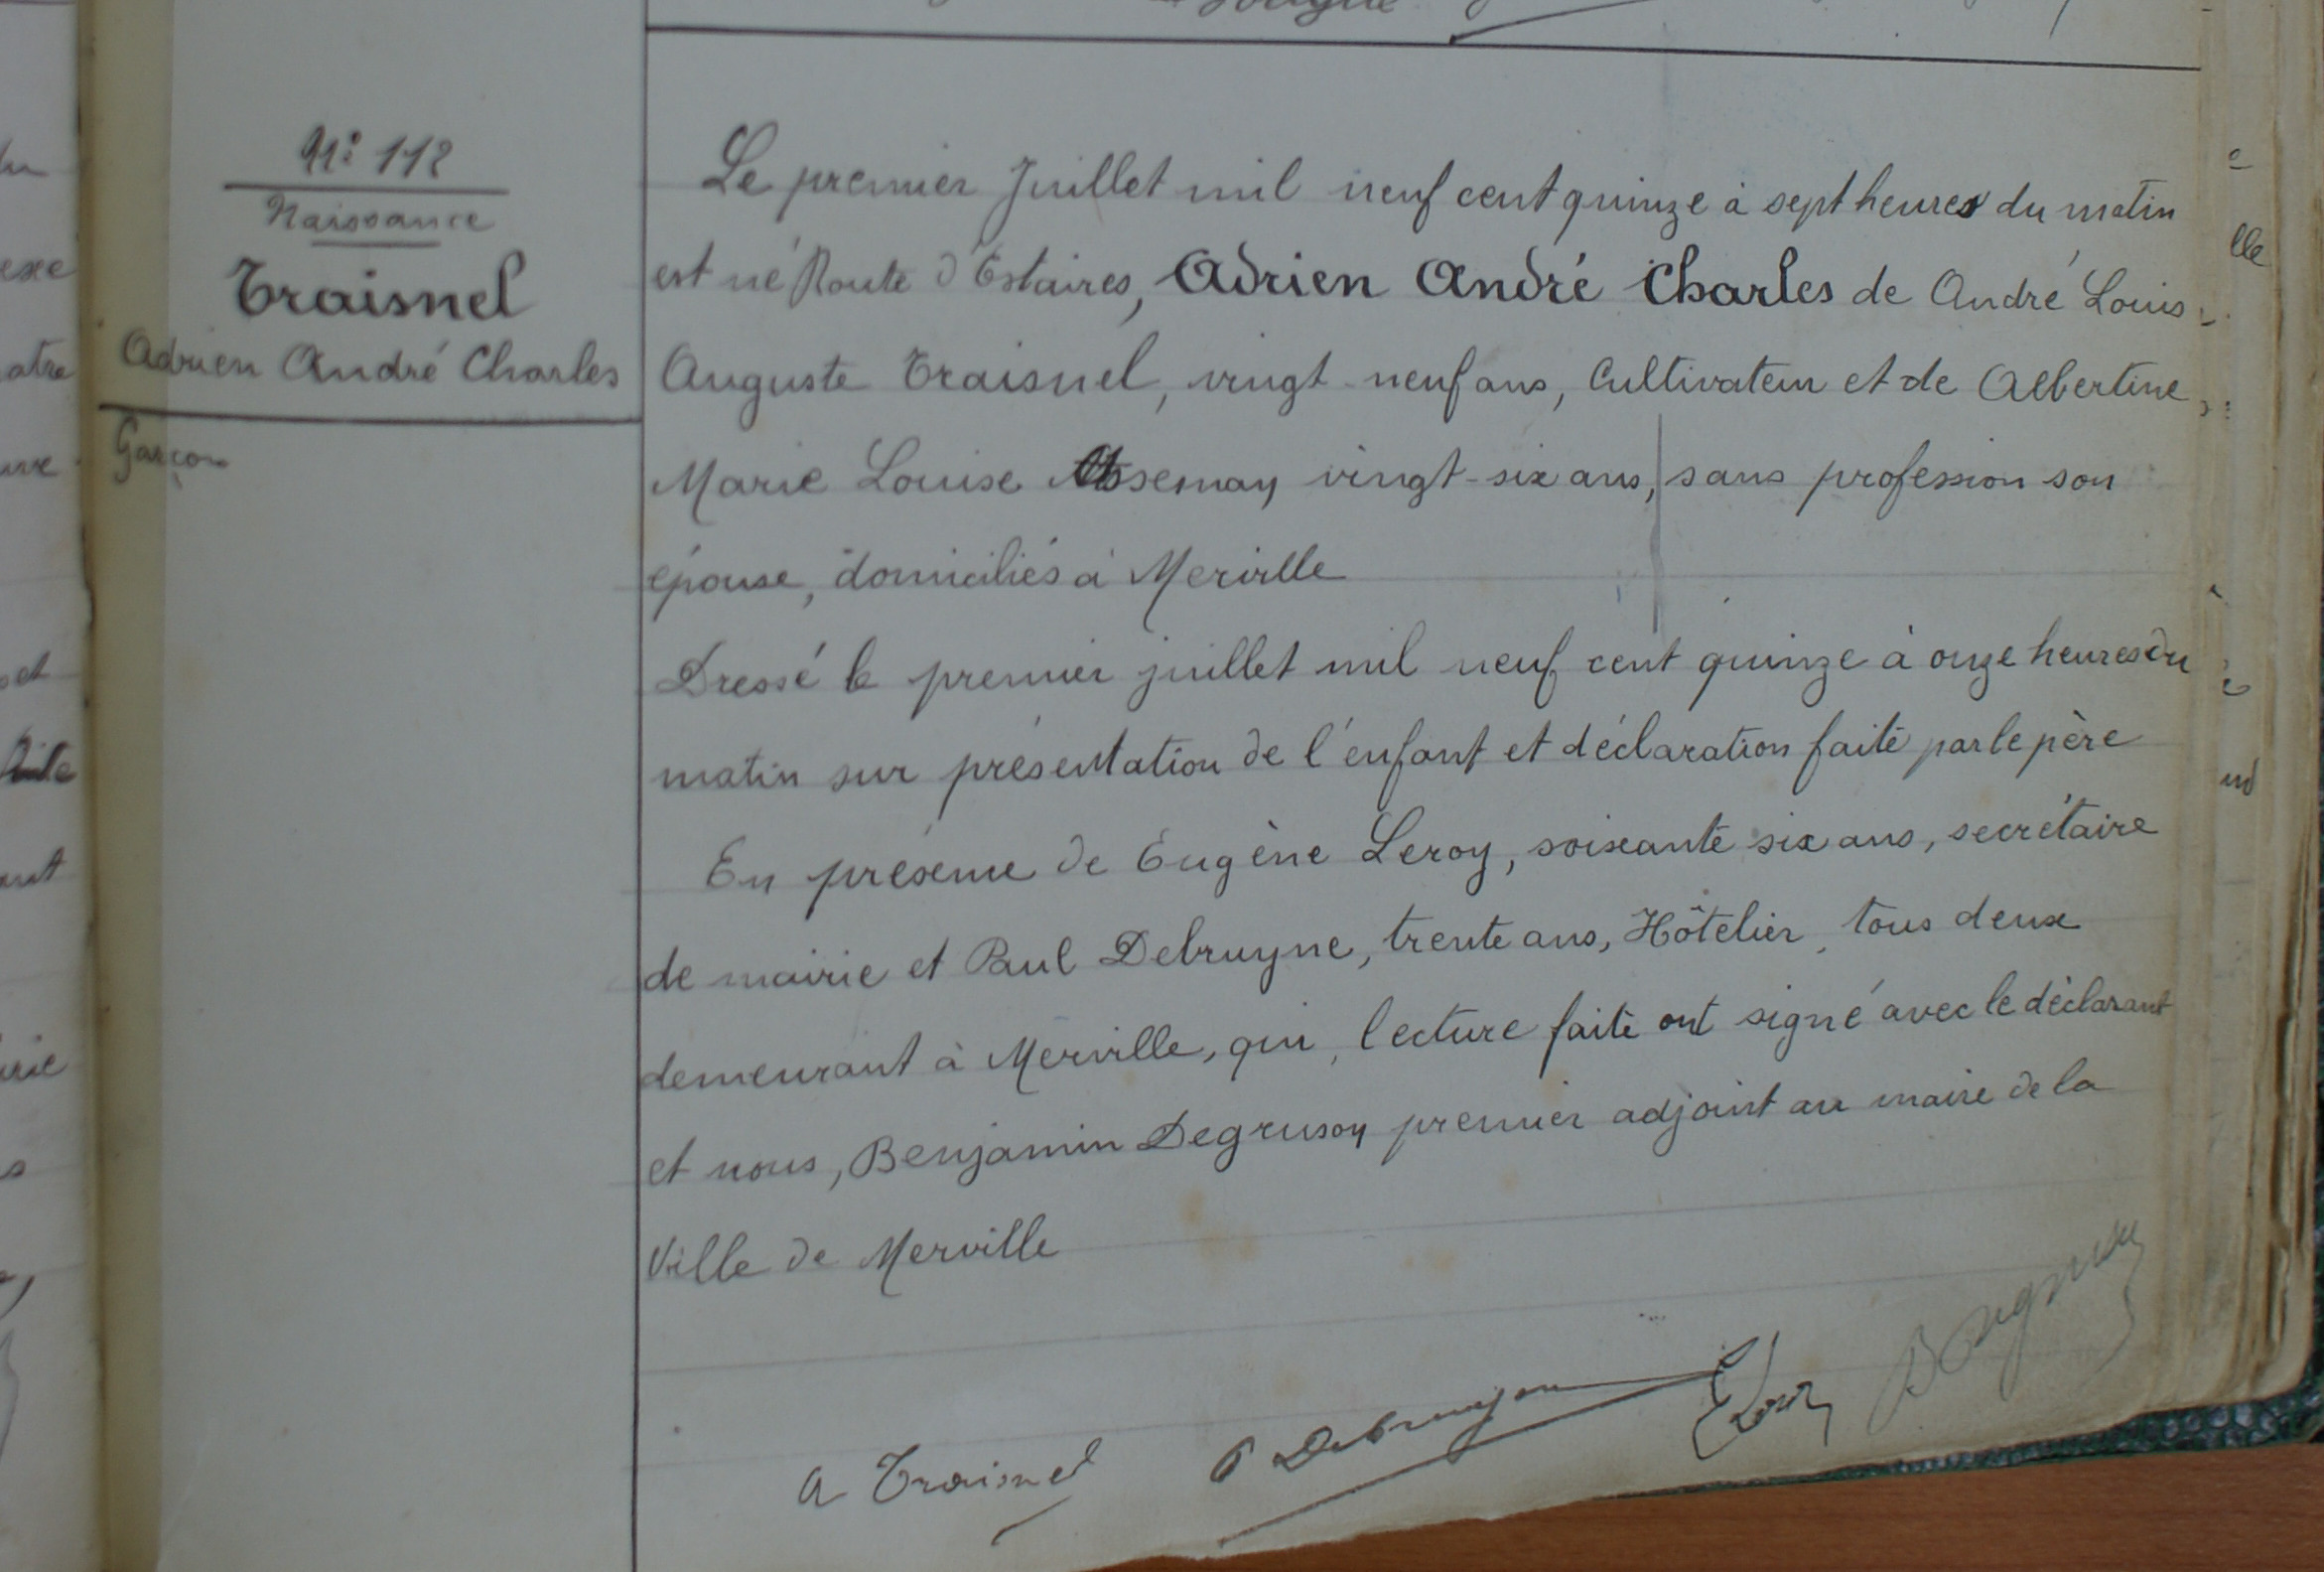 N° 112
Naissance
Traisnel
Adrien André Charles
Garçon
Le premier Juillet mil neuf cent quinze à sept heures du matin
est né Route d'Estaires, Adrien André Charles de André Louis
Auguste Traisnel, vingt-neuf ans, Cultivateur et de Albertine
Marie Louise Assemay vingt-six ans, sans profession son
épouse, domiciliés à Merville
Dressé le premier juillet mil neuf cent quinze à onze heures du
matin sur présentation de l'enfant et déclaration faite par le père
En présence de Eugène Leroy, soixante six ans, secrétaire
de mairie et Paul Debruyne, trente ans, Hôtelier, tous deux
demeurant à Merville, qui, lecture faite ont signé avec le déclarant
et nous, Benjamin Degruson premier adjoint au maire de la
Ville de Merville
A Traisnel P Debruyne E Leroy